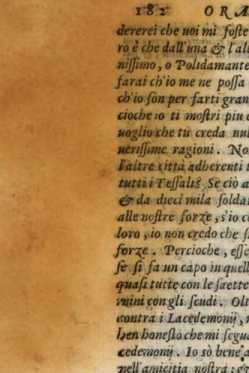 182 ORA
dererei che uoi mi foste
ro è che dall'una & l'al
nissimo, o Polidamante
farai ch'io me ne possa
ch'io son per farti gran
cioche io ti mostri piu
uoglio che tu creda nul
uerissime ragioni. No
l'altre città adherenti
tutti i Tessali? Se ciò a
& da dieci mila soldat
alle nostre forze, s'io c
loro, io non credo che s
forze. Percioche, esse
se si fa un capo in quell
quasi tutte con le saette
mini con gli scudi. Olt
contra i Lacedemonij,
ben honesto che mi segu
cedemonij. Io sò bene
nell'amicitia nostra